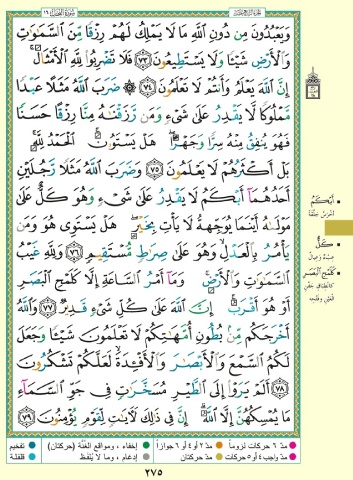 الجزء الرابع عشر
سورة النحل ١٦
وَيَعْبُدُونَ مِن دُونِ ٱللَّهِ مَا لَا يَمْلِكُ لَهُمْ رِزْقًا مِّنَ ٱلسَّمَٰوَٰتِ
وَٱلْأَرْضِ شَيْـًٔا وَلَا يَسْتَطِيعُونَ ٧٣ فَلَا تَضْرِبُوا۟ لِلَّهِ ٱلْأَمْثَالَ
إِنَّ ٱللَّهَ يَعْلَمُ وَأَنتُمْ لَا تَعْلَمُونَ ٧٤ ۞ ضَرَبَ ٱللَّهُ مَثَلًا عَبْدًا
مَّمْلُوكًا لَّا يَقْدِرُ عَلَىٰ شَىْءٍ وَمَن رَّزَقْنَٰهُ مِنَّا رِزْقًا حَسَنًا
فَهُوَ يُنفِقُ مِنْهُ سِرًّا وَجَهْرًا هَلْ يَسْتَوُۥنَ ٱلْحَمْدُ لِلَّهِ
بَلْ أَكْثَرُهُمْ لَا يَعْلَمُونَ ٧٥ وَضَرَبَ ٱللَّهُ مَثَلًا رَّجُلَيْنِ
أَحَدُهُمَآ أَبْكَمُ لَا يَقْدِرُ عَلَىٰ شَىْءٍ وَهُوَ كَلٌّ عَلَىٰ
مَوْلَىٰهُ أَيْنَمَا يُوَجِّههُّ لَا يَأْتِ بِخَيْرٍ هَلْ يَسْتَوِى هُوَ وَمَن
يَأْمُرُ بِٱلْعَدْلِ وَهُوَ عَلَىٰ صِرَٰطٍ مُّسْتَقِيمٍ ٧٦ وَلِلَّهِ غَيْبُ
ٱلسَّمَٰوَٰتِ وَٱلْأَرْضِ وَمَآ أَمْرُ ٱلسَّاعَةِ إِلَّا كَلَمْحِ ٱلْبَصَرِ
أَوْ هُوَ أَقْرَبُ إِنَّ ٱللَّهَ عَلَىٰ كُلِّ شَىْءٍ قَدِيرٌ ٧٧ وَٱللَّهُ
أَخْرَجَكُم مِّنۢ بُطُونِ أُمَّهَٰتِكُمْ لَا تَعْلَمُونَ شَيْـًٔا وَجَعَلَ
لَكُمُ ٱلسَّمْعَ وَٱلْأَبْصَٰرَ وَٱلْأَفْـِٔدَةَ لَعَلَّكُمْ تَشْكُرُونَ
٧٨ أَلَمْ يَرَوْا۟ إِلَى ٱلطَّيْرِ مُسَخَّرَٰتٍ فِى جَوِّ ٱلسَّمَآءِ
مَا يُمْسِكُهُنَّ إِلَّا ٱللَّهُ إِنَّ فِى ذَٰلِكَ لَءَايَٰتٍ لِّقَوْمٍ يُؤْمِنُونَ ٧٩
أَبْكَمُ
أخرس خلقة
كَلٌّ
عبء وعيال
كَلَمْحِ الْبَصَرِ
مدّ ٦ حركات لزوماً مدّ ٢ أو ٤ أو ٦ جوازاً إخفاء، ومواقع الغُنّة (حركتان) تفخيم
مدّ واجب ٤ أو ٥ حركات مدّ حركتان إدغام، وما لا يُلفَظ قلقلة
٢٧٥